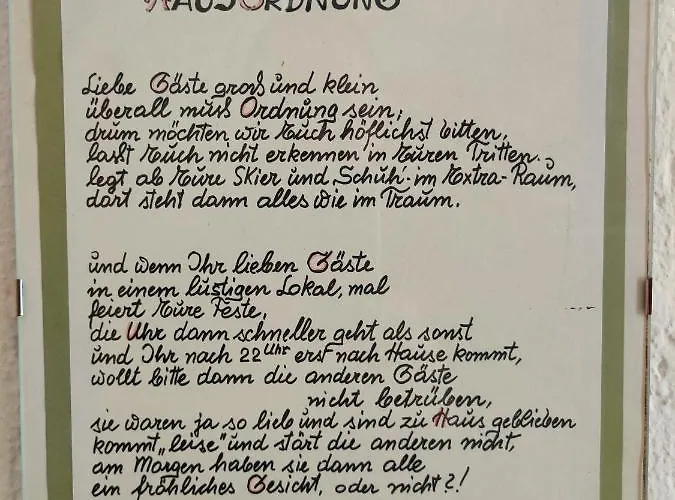 HAUSORDNUNG
Liebe Gäste groß und klein
überall muß Ordnung sein,
drum möchten wir Euch höflichst bitten,
laßt Euch nicht erkennen in Euren Tritten.
legt ab Eure Skier und Schuh' im Extra-Raum,
dort steht dann alles wie im Traum.
und wenn Ihr lieben Gäste
in einem lustigen Lokal, mal
feiert Eure Feste,
die Uhr dann schneller geht als sonst
und Ihr nach 22 Uhr erst nach Hause kommt,
wollt bitte dann die anderen Gäste
nicht betrüben,
sie waren ja so lieb und sind zu Haus geblieben
kommt „leise" und stört die anderen nicht,
am Morgen haben sie dann alle
ein fröhliches Gesicht, oder nicht?!